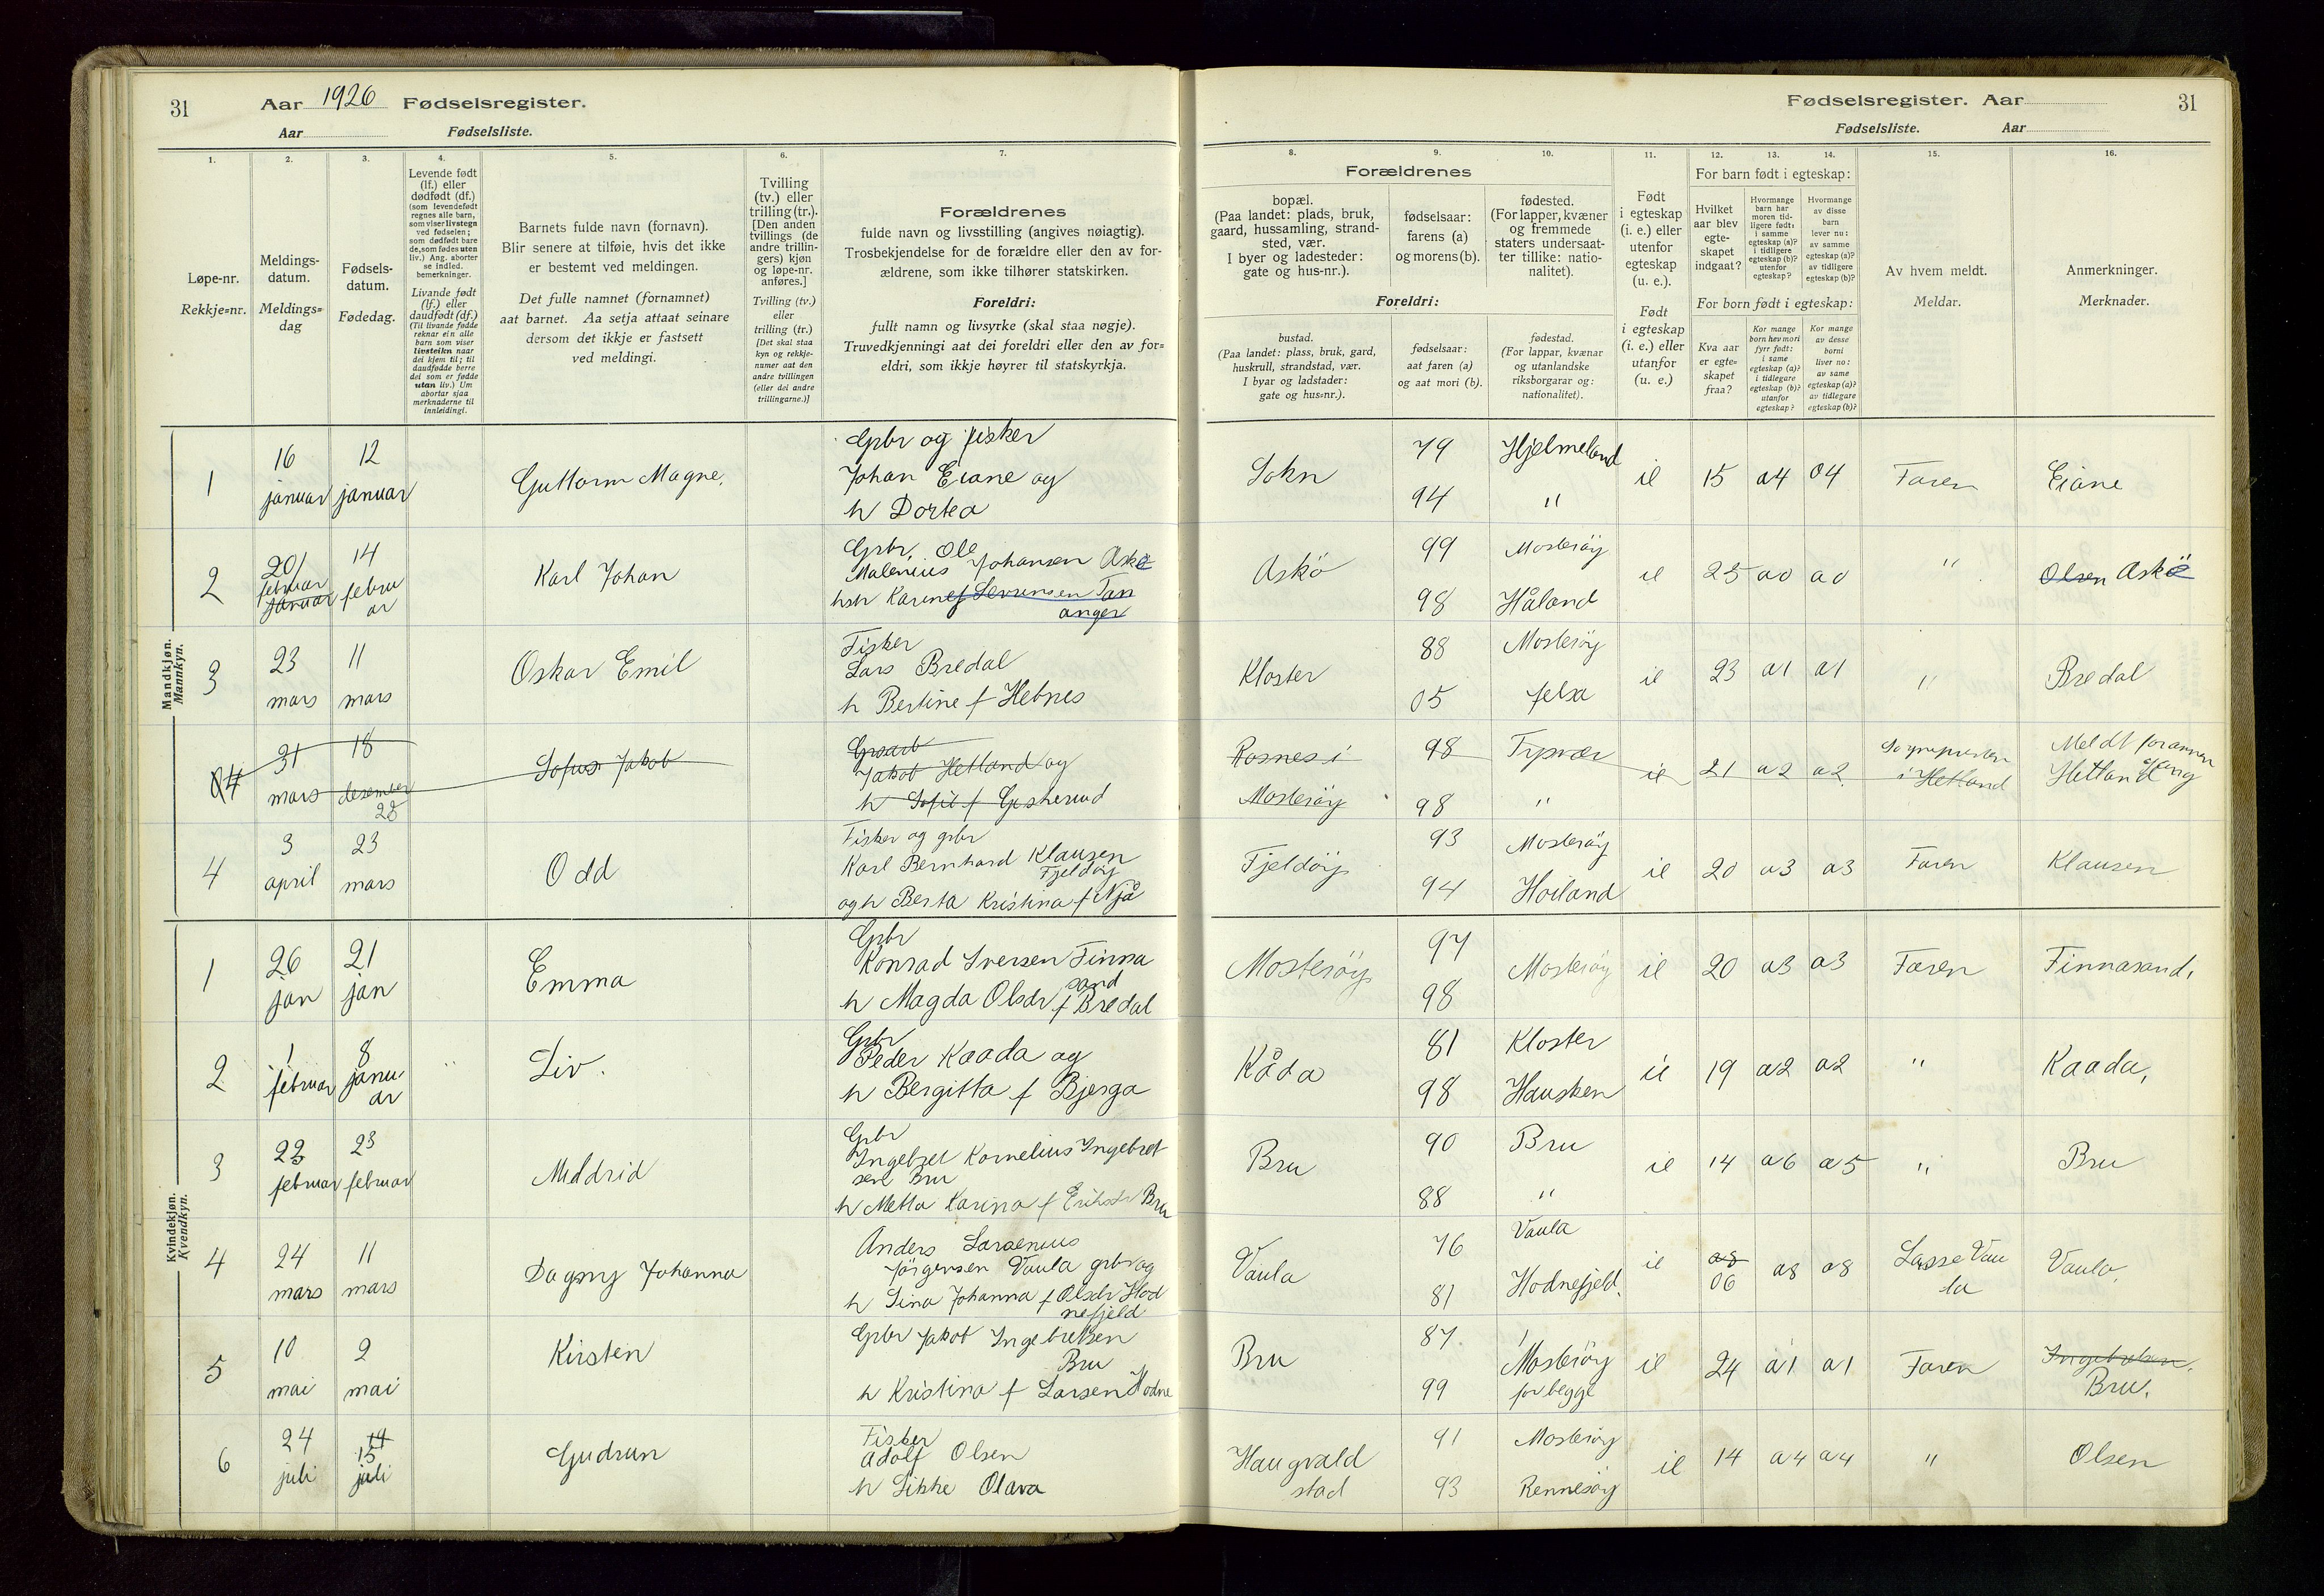 31 Aar 1926 Fødselsregister.
Aar Fødselsliste.
Fødselsregister. Aar 31
Fødselsliste. Aar
1.
Løpe-nr.
Rekkje=nr.
2.
Meldings-
datum.
Meldings=
dag
3.
Fødsels-
datum.
Fødedag.
4.
Levende født
(lf.) eller
dødfødt (df.)
(som levendefødt
regnes alle barn,
som viser livstegn
ved fødselen;
som dødfødt bare
de, som fødes uten
liv.) Ang. aborter
se indled.
bemerkninger.
Livande født
(lf.) eller
daudfødt (df.)
(Til livande fødde
reknar ein alle
barn som viser
livsteikn naar
dei kjem til; til
daudfødde berre
dei som er fødde
utan liv.) Um
abortar sjaa
merknaderne til
innleidingi.
5.
Barnets fulde navn (fornavn).
Blir senere at tilføie, hvis det ikke
er bestemt ved meldingen.
Det fulle namnet (fornamnet)
aat barnet. Aa setja attaat seinare
dersom det ikkje er fastsett
ved meldingi.
6.
Tvilling
(tv.) eller
trilling (tr.).
[Den anden
tvillings (de
andre trillin-
gers) kjøn
og løpe-nr.
anføres.]
Tvilling (tv.)
eller
trilling (tr.)
[Det skal staa
kyn og rekkje-
numer aat den
andre tvillingen
(eller dei andre
trillingarne.)]
7.
Forældrenes
fulde navn og livsstilling (angives nøiagtig).
Trosbekjendelse for de forældre eller den av for-
ældrene, som ikke tilhører statskirken.
Foreldri:
fullt namn og livsyrke (skal staa nøgje).
Truvedkjenningi aat dei foreldri eller den av for=
eldri, som ikkje høyrer til statskyrkja.
8.
Forældrenes
bopæl.
(Paa landet: plads, bruk,
gaard, hussamling, strand-
sted, vær.
I byer og ladesteder:
gate og hus-nr.).
Foreldri:
bustad.
(Paa landet: plass, bruk, gard,
huskrull, strandstad, vær.
I byar og ladstader:
gate og hus=nr.).
9.
fødselsaar:
farens (a)
og morens (b).
fødselsaar:
aat faren (a)
og aat mori (b).
10.
fødested.
(For lapper, kvæner
og fremmede
staters undersaat-
ter tillike: natio-
nalitet).
fødestad.
(For lappar, kvænar
og utanlandske
riksborgarar og:
nationalitet).
11.
Født
i egteskap
(i. e.) eller
utenfor
egteskap
(u. e.).
Født
i egteskap
(i. e.) eller
utanfor
(u. e.)
12. 13. 14.
For barn født i egteskap:
Hvilket
aar blev
egte-
skapet
indgaat?
Hvormange
barn har
moren tid-
ligere født:
i samme
egteskap (a)?
i tidligere
egteskap (b)?
utenfor
egteskap?
Hvormange
av disse
barn
lever nu:
av samme
egteskap (a)?
av tidligere
egteskap (b)?
For born født i egteskap:
Kva aar
er egte=
skapet
fraa?
Kor mange
born hev mori
fyrr født:
i same
egteskap (a)?
i tidlegare
egteskap (b)?
utanfor
egteskap?
Kor mange
av desse
borni
liver no:
av same
egteskap (a)?
av tidlegare
egteskap (b)?
15.
Av hvem meldt.
Meldar.
16.
Anmerkninger.
Merknader.
Mandkjøn.
Mannkyn.
1
16 12
januar januar
Guttorm Magne.
Grbr og fisker
Johan Eiane og
h Dortea
Sokn
79 Hjelmeland
94 "
ie 15 a4 04 Faren Eiane
2
20/ 14
februar
januar
febru
ar
Karl Johan
Grbr. Ole
Malenius Johansen Askø
hsh Karine f Sevrensen Tan
anger
Askö
99 Mosterøy
98 Håland
ie 25 a0 a0 " Olsen Askø
3
23 11
mars mars
Oskar Emil
Fisker
Lars Bredal
h Bertine f Hebnes
Kloster
88 Mosterøy
05 Jelsa
ie 23 a1 a1 " Bredal
4
31 18
mars desember
Sofus Jakob
Jakob Hetland og
h
Rosnes i
Mosterøy
98
98 "
ie 21 a2 a2 Sognepresten
i Hetland
Meldt
Hetland
4
3 23
april mars
Odd
Fisker og grbr
Karl Bernhard Klausen
Fjeldøy
og h Berta Kristina f Njå
Fjeldöy
93 Mosterøy
94 Hoiland
ie 20 a3 a3 Faren Klausen
Kvindekjøn.
Kvendkyn.
1
26 21
jan jan
Emma
Grbr
Konrad Iversen Finna
sand
h Magda Olsdr f Bredal
Mosterøy
97
98
Mosterøy ie 20 a3 a3 Faren Finnasand.
2
1 8
februar janu
ar
Liv.
Grbr
Peder Kaada og
h Bergitta f Bjerga
Kåda
81 Kloster
98 Hausken
ie 19 a2 a2 " Kaada.
3
22 23
februar februar
Mildrid
Grbr
Ingebret Kornelius Ingebret
sen Bru
h Metta Karina f Eriksdr Bru
Bru
90 Bru
88 "
ie 14 a6 a5 " Bru
4
24 11
mars mars
Dagny Johanna
Anders Laraenius
Jörgensen Vaula grbr og
h Sina Johanna f Olsdr Hod
nefjeld
Vaula
76 Vaula
81 Hodnefjeld.
ie 06 a8 a8 Lasse Vau
la
Vaula.
5
10 2
mai mai
Kirsten
Grbr Jakob Ingebretsen
Bru
h Kristina f Larsen Hodne
Bru
87
99
Mosterøy
for begge
ie 24 a1 a1 Faren Ingebretsen.
Bru.
6
24 14
15
juli juli
Gudrun
Fisker
Adolf Olsen
h Sikke Olava
Haugvald
stad
91 Mosterøy
93 Rennesöy
ie 14 a4 a4 " Olsen